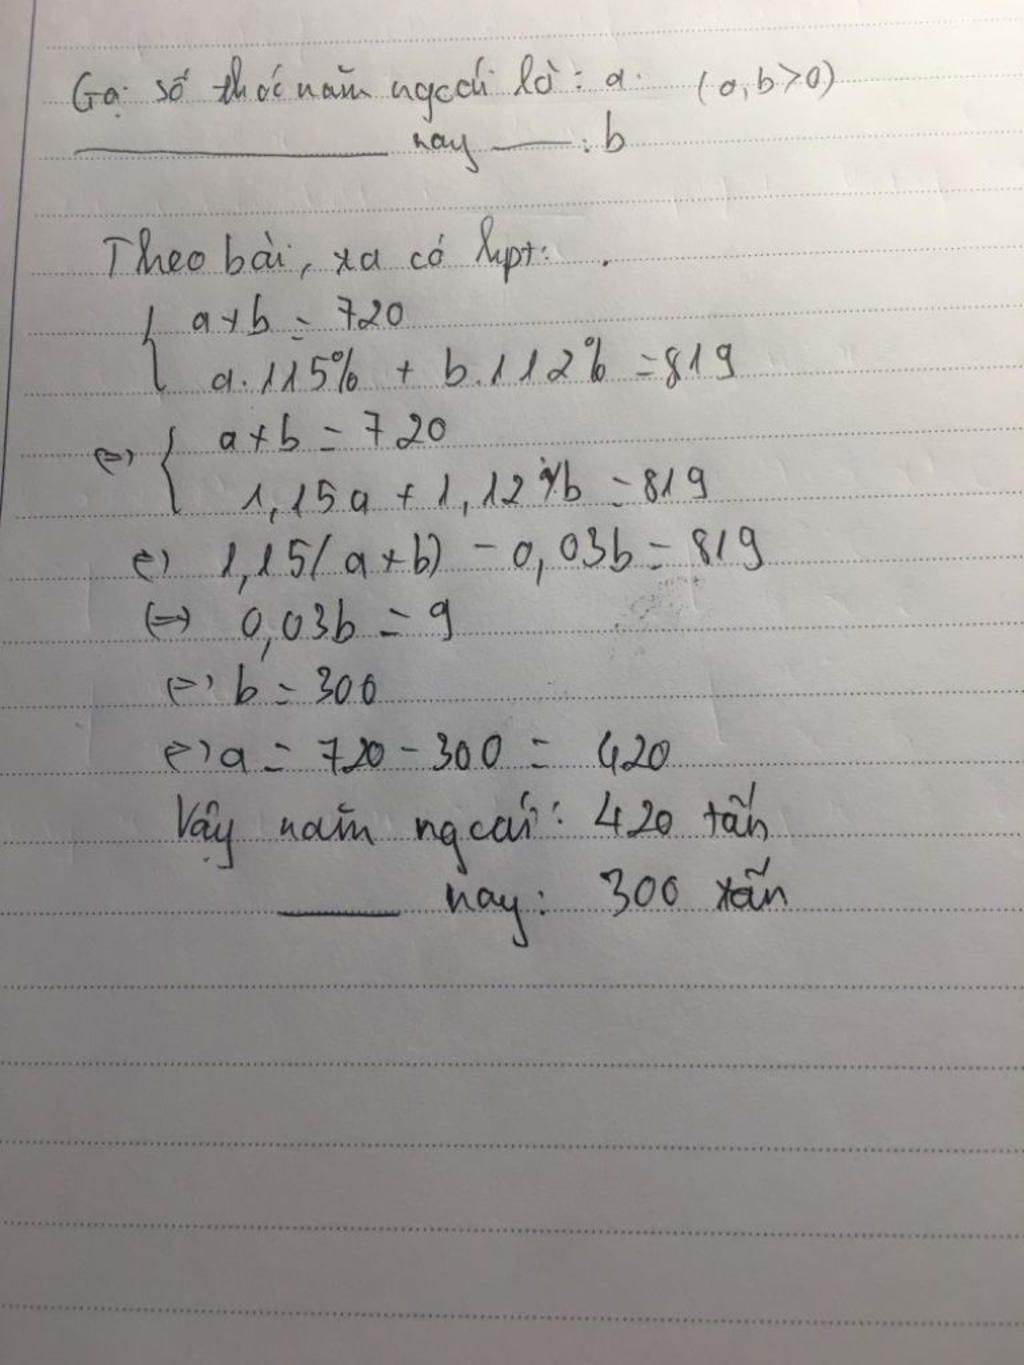 Gọi số thóc năm ngoái là: a. (a, b > 0)
——— nay —: b
Theo bài, ta có hpt:
{ a + b = 720
a.115% + b.112% = 819
⇔ { a + b = 720
1,15a + 1,12b = 819
⇔ 1,15(a + b) - 0,03b = 819
⇔ 0,03b = 9
⇔ b = 300
⇔ a = 720 - 300 = 420
Vậy năm ngoái: 420 tấn
—— nay: 300 tấn